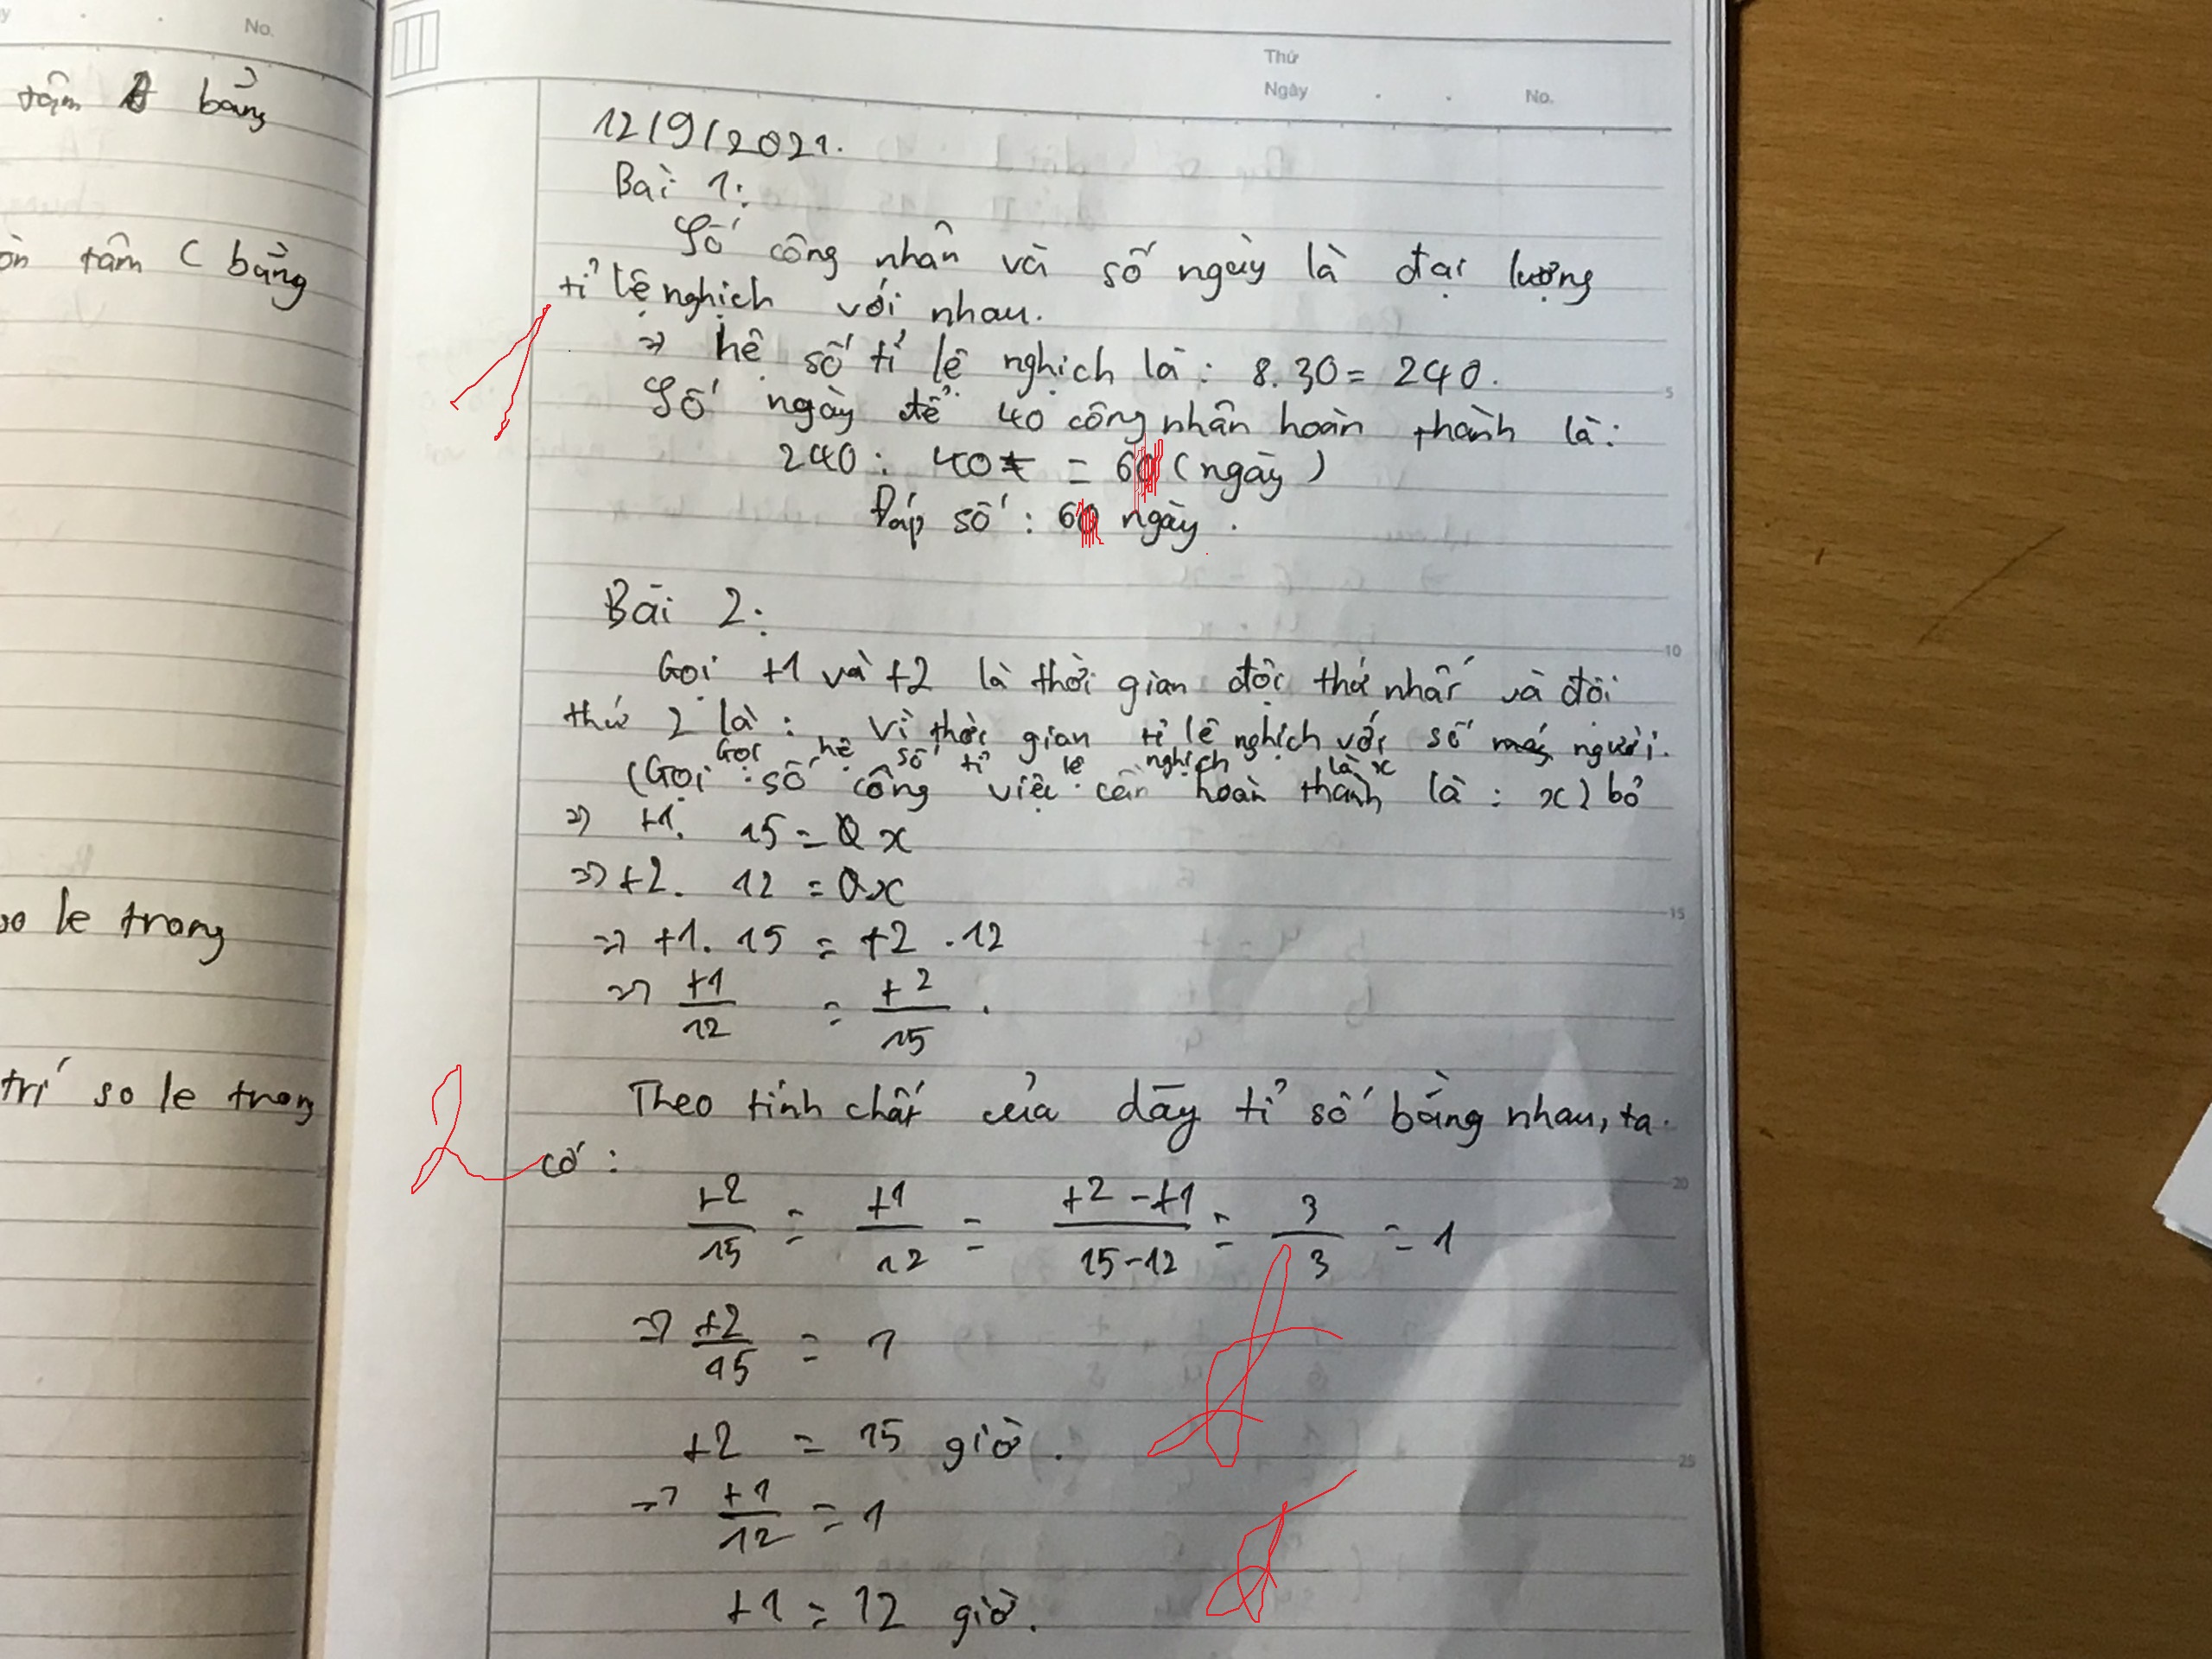 No.
tâm B bằng
òn tâm C bằng
so le trong
trí so le trong
Thứ
Ngày . . No.
12/9/2021.
Bài 1:
Số công nhân và số ngày là đại lượng
tỉ lệ nghịch với nhau.
=> hệ số tỉ lệ nghịch là: 8.30 = 240.
Số ngày để 40 công nhân hoàn thành là:
240 : 40 = 60 (ngày)
Đáp số : 60 ngày.
Bài 2:
Gọi t1 và t2 là thời gian đội thứ nhất và đội
thứ 2 là : Vì thời gian tỉ lệ nghịch với số máy người.
Gọi hệ số tỉ lệ nghịch là x
(Gọi số công việc cần hoàn thành là : x) bỏ
=> t1. 15 = x
=> t2. 12 = x
=> t1. 15 = t2 . 12
=> t1/12 = t2/15 .
Theo tính chất của dãy tỉ số bằng nhau, ta
2 có :
t2/15 = t1/12 = t2 - t1/15-12 = 3/3 = 1
=> t2/15 = 1
t2 = 15 giờ .
=> t1/12 = 1
t1 = 12 giờ.
5
10
15
20
25